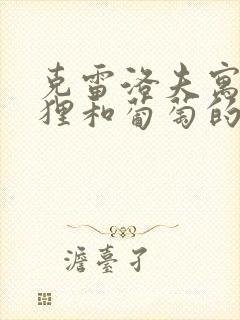 克雷洛夫寓
狸和葡萄的
澹臺子